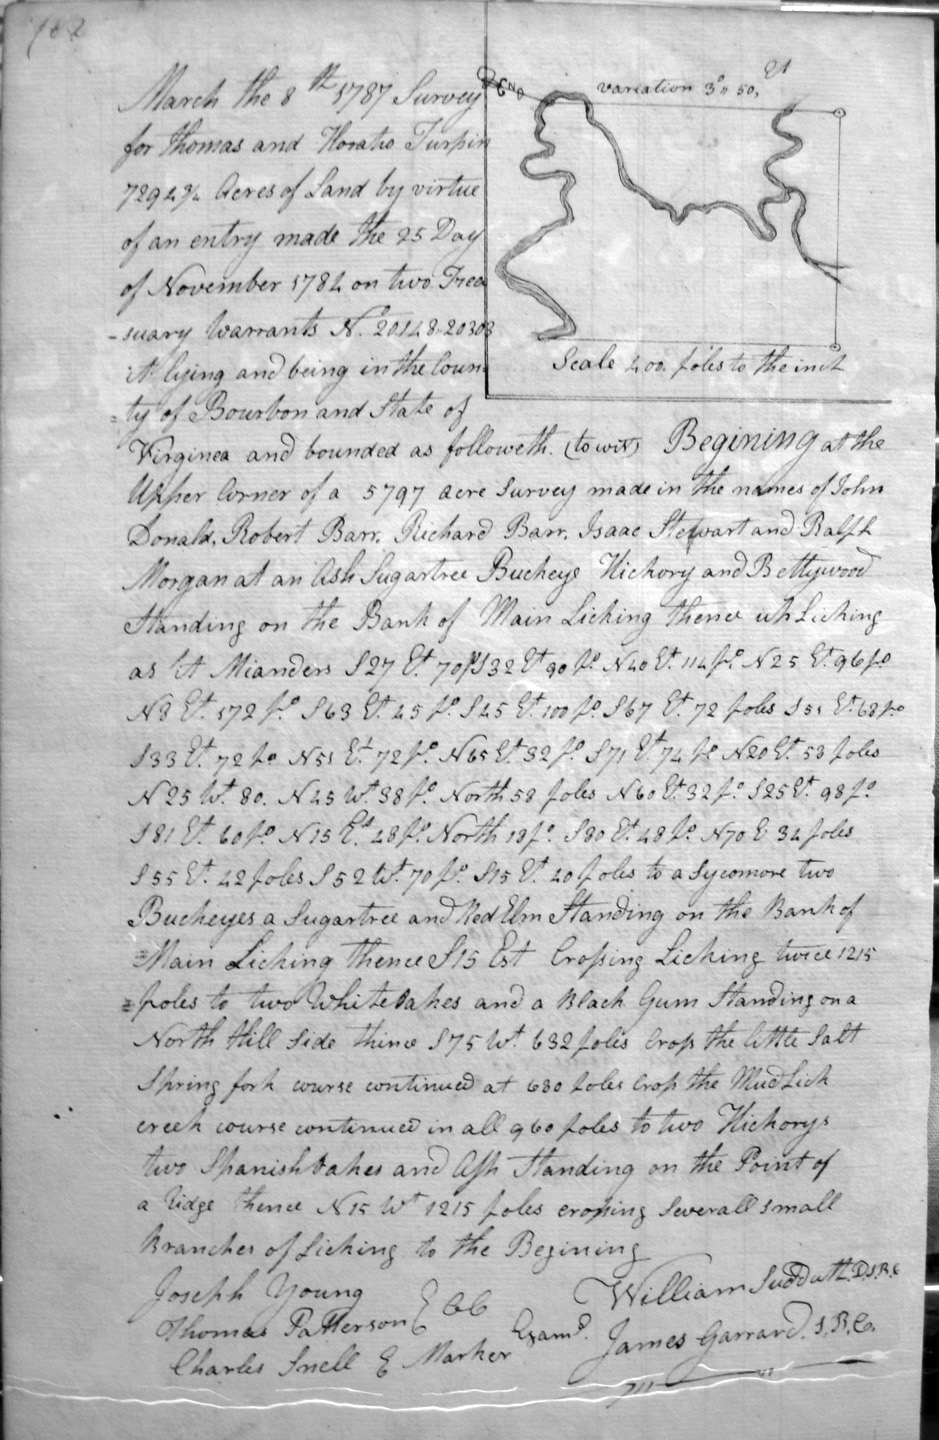 182
March the 8th 1787 Survey
for Thomas and Horatio Turpin
7292 3/4 Acres of Land by virtue
of an entry made the 25 Day
of November 1782 on two Trea
-suary Warrants No. 20128. 20303
it lying and being in the Coun
=ty of Bourbon and State of
variation 3° 50, Et
Scale 400. poles to the inch
Virginea and bounded as followeth. (to wit) Begining at the
Upper Corner of a 5797 acre Survey made in the names of John
Donald, Robert Barr. Richard Barr. Isaac Stewart and Ralph
Morgan at an Ash Sugartree Buckeye Hickory and Bettywood
Standing on the Bank of Main Licking thence up Licking
as it Mianders S27 Et. 70 po S32 Et 90 po N40 Et. 114 po. N25 Et. 96 po
N8 Et. 172 po. S63 Et. 45 po. S45 Et. 100 po S67 Et. 72 poles S51 Et. 68 po
S33 Et. 72 po N51 Et 72 po. N65 Et. 32 po. S71 Et 74 po N20 Et. 58 poles
N25 Wt. 80. N45 Wt 38 po. North 58 poles N60 Et. 32 po. S25 Et. 98 po.
S81 Et. 60 po. N15 Et. 48 po. North 18 po. S80 Et. 48 po. N70 E 34 poles
S55 Et. 42 poles S52 Wt. 70 po. S15 Et. 40 poles to a Sycomore two
Buckeyes a Sugartree and Red Elm Standing on the Bank of
=Main Licking thence S15 Est Crosing Licking twice 1215
=poles to two White Oakes and a Black Gum Standing on a
North Hill Side thince S75 Wt. 632 poles Cross the little Salt
Spring fork course continued at 680 poles Cross the Mud Lick
creek course continued in all 960 poles to two Hickorys
two Spanish Oakes and Ash Standing on the Point of
a Ridge thence N15 Wt 1215 poles crossing Severall small
Branches of Licking to the Begining
Joseph Young
Thomas Patterson } CC
Charles Snell } Marker
William Sudduth. D.S.B.C
Examd. James Garrard. S.B.C.